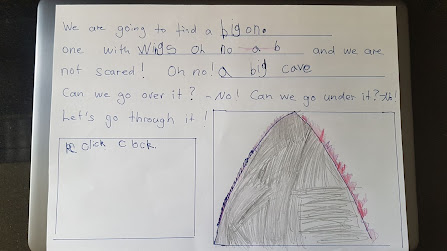 We are going to find a big one
one with wigs oh no a b and we are
not scared! Oh no! a big cave
Can we go over it? - No! Can we go under it? - No!
Let's go through it!
click clock.